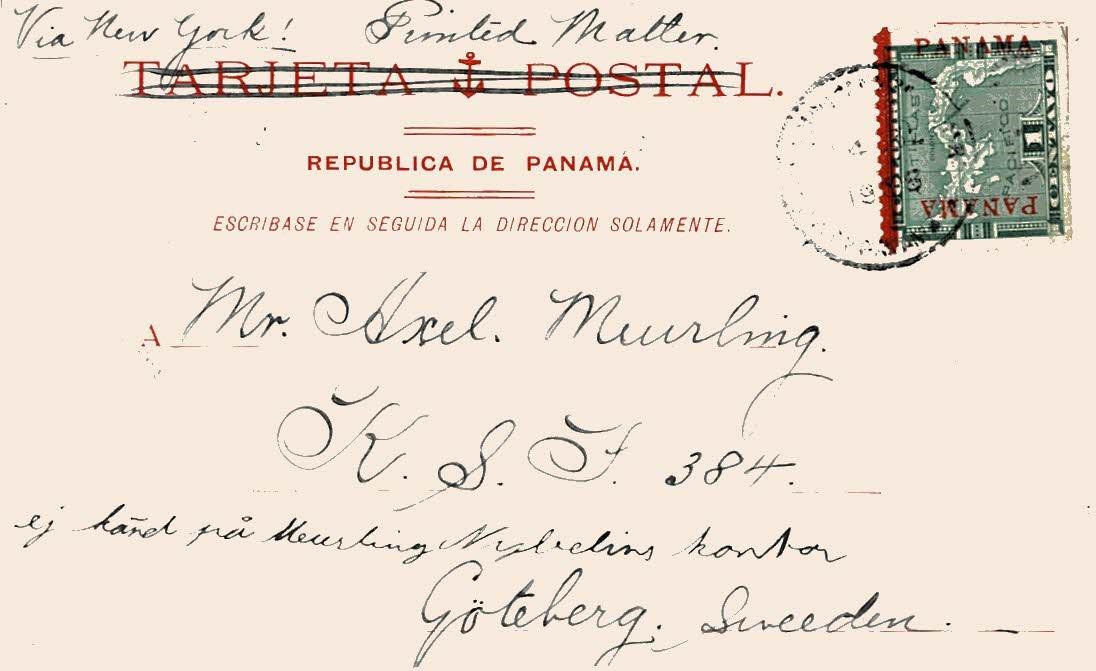 Via New York! Printed Matter.
TARJETA POSTAL.
REPUBLICA DE PANAMÁ.
ESCRIBASE EN SEGUIDA LA DIRECCION SOLAMENTE.
PANAMA
PANAMA
1
A Mr. Axel. Meurling.
K. S. F. 384.
ej känd på Meurling kontor
Göteberg. Sweeden.